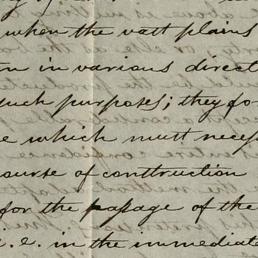 when the vast plains
in various direct
such purposes; they fo
e which must neces
ourse of construction
for the passage of the
i.e. in the immediate